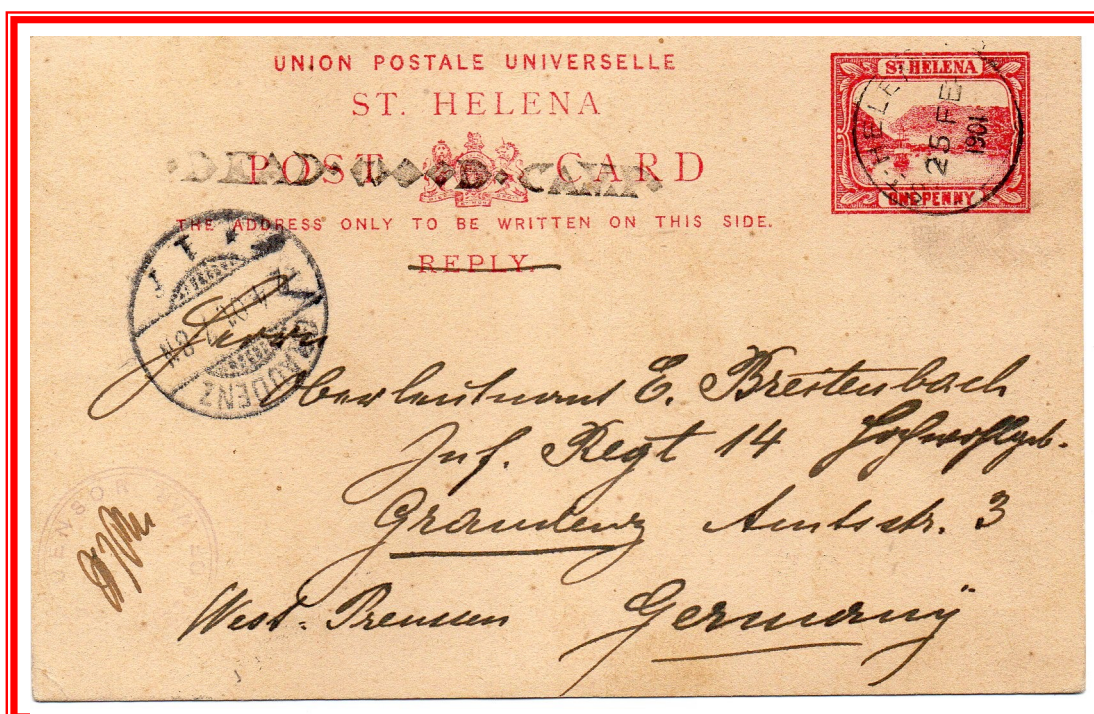 UNION POSTALE UNIVERSELLE
ST. HELENA
POST CARD
DEAD·WOOD·CAMP.
THE ADDRESS ONLY TO BE WRITTEN ON THIS SIDE.
REPLY.
ST HELENA
ONE PENNY
ST. HELENA
25 FE
1901
GRAUDENZ
Herrn
Oberleutnant E. Breitenbach
Inf. Regt 14 Hochwohlgeb.
Graudenz Amtsstr. 3
West-Preussen Germany
CENSOR